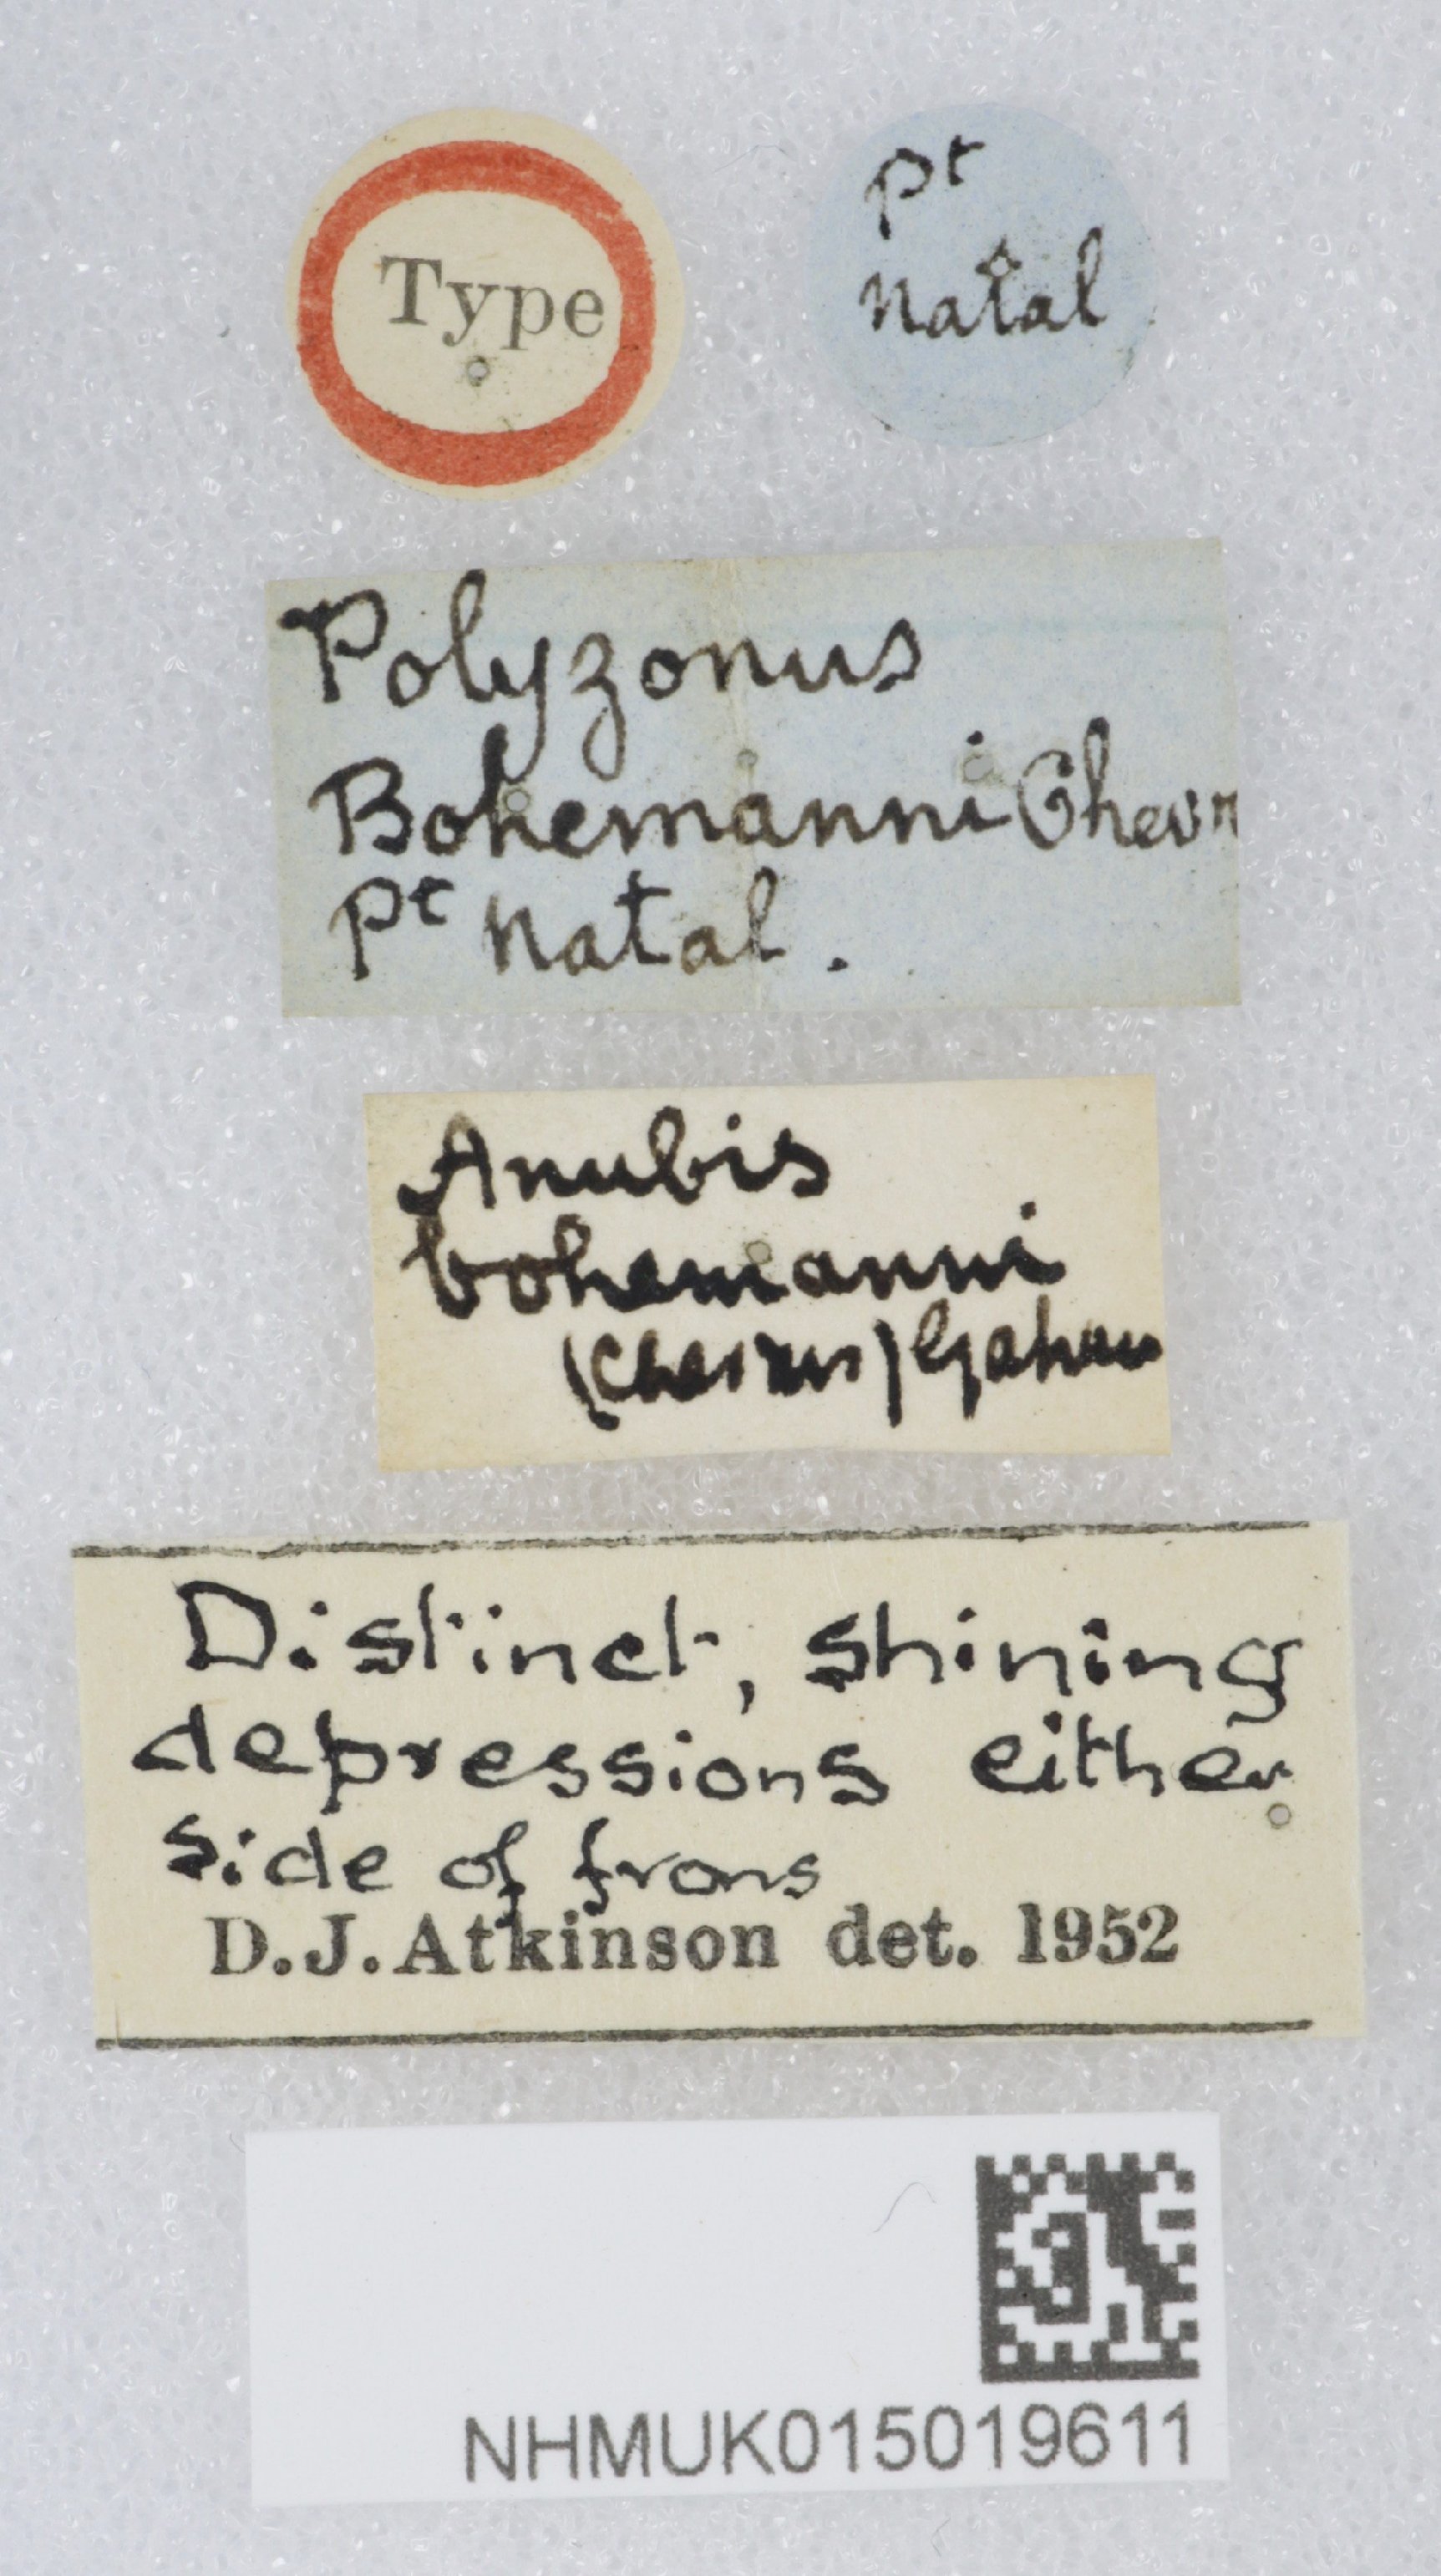 Type
pt
natal
Polyzonus
Bohemanni Chevr
pt natal.
Anubis
bohemanni
Gahan
Distinct, shining
depressions either
side of frons
D.J. Atkinson det. 1952
NHMUK015019611